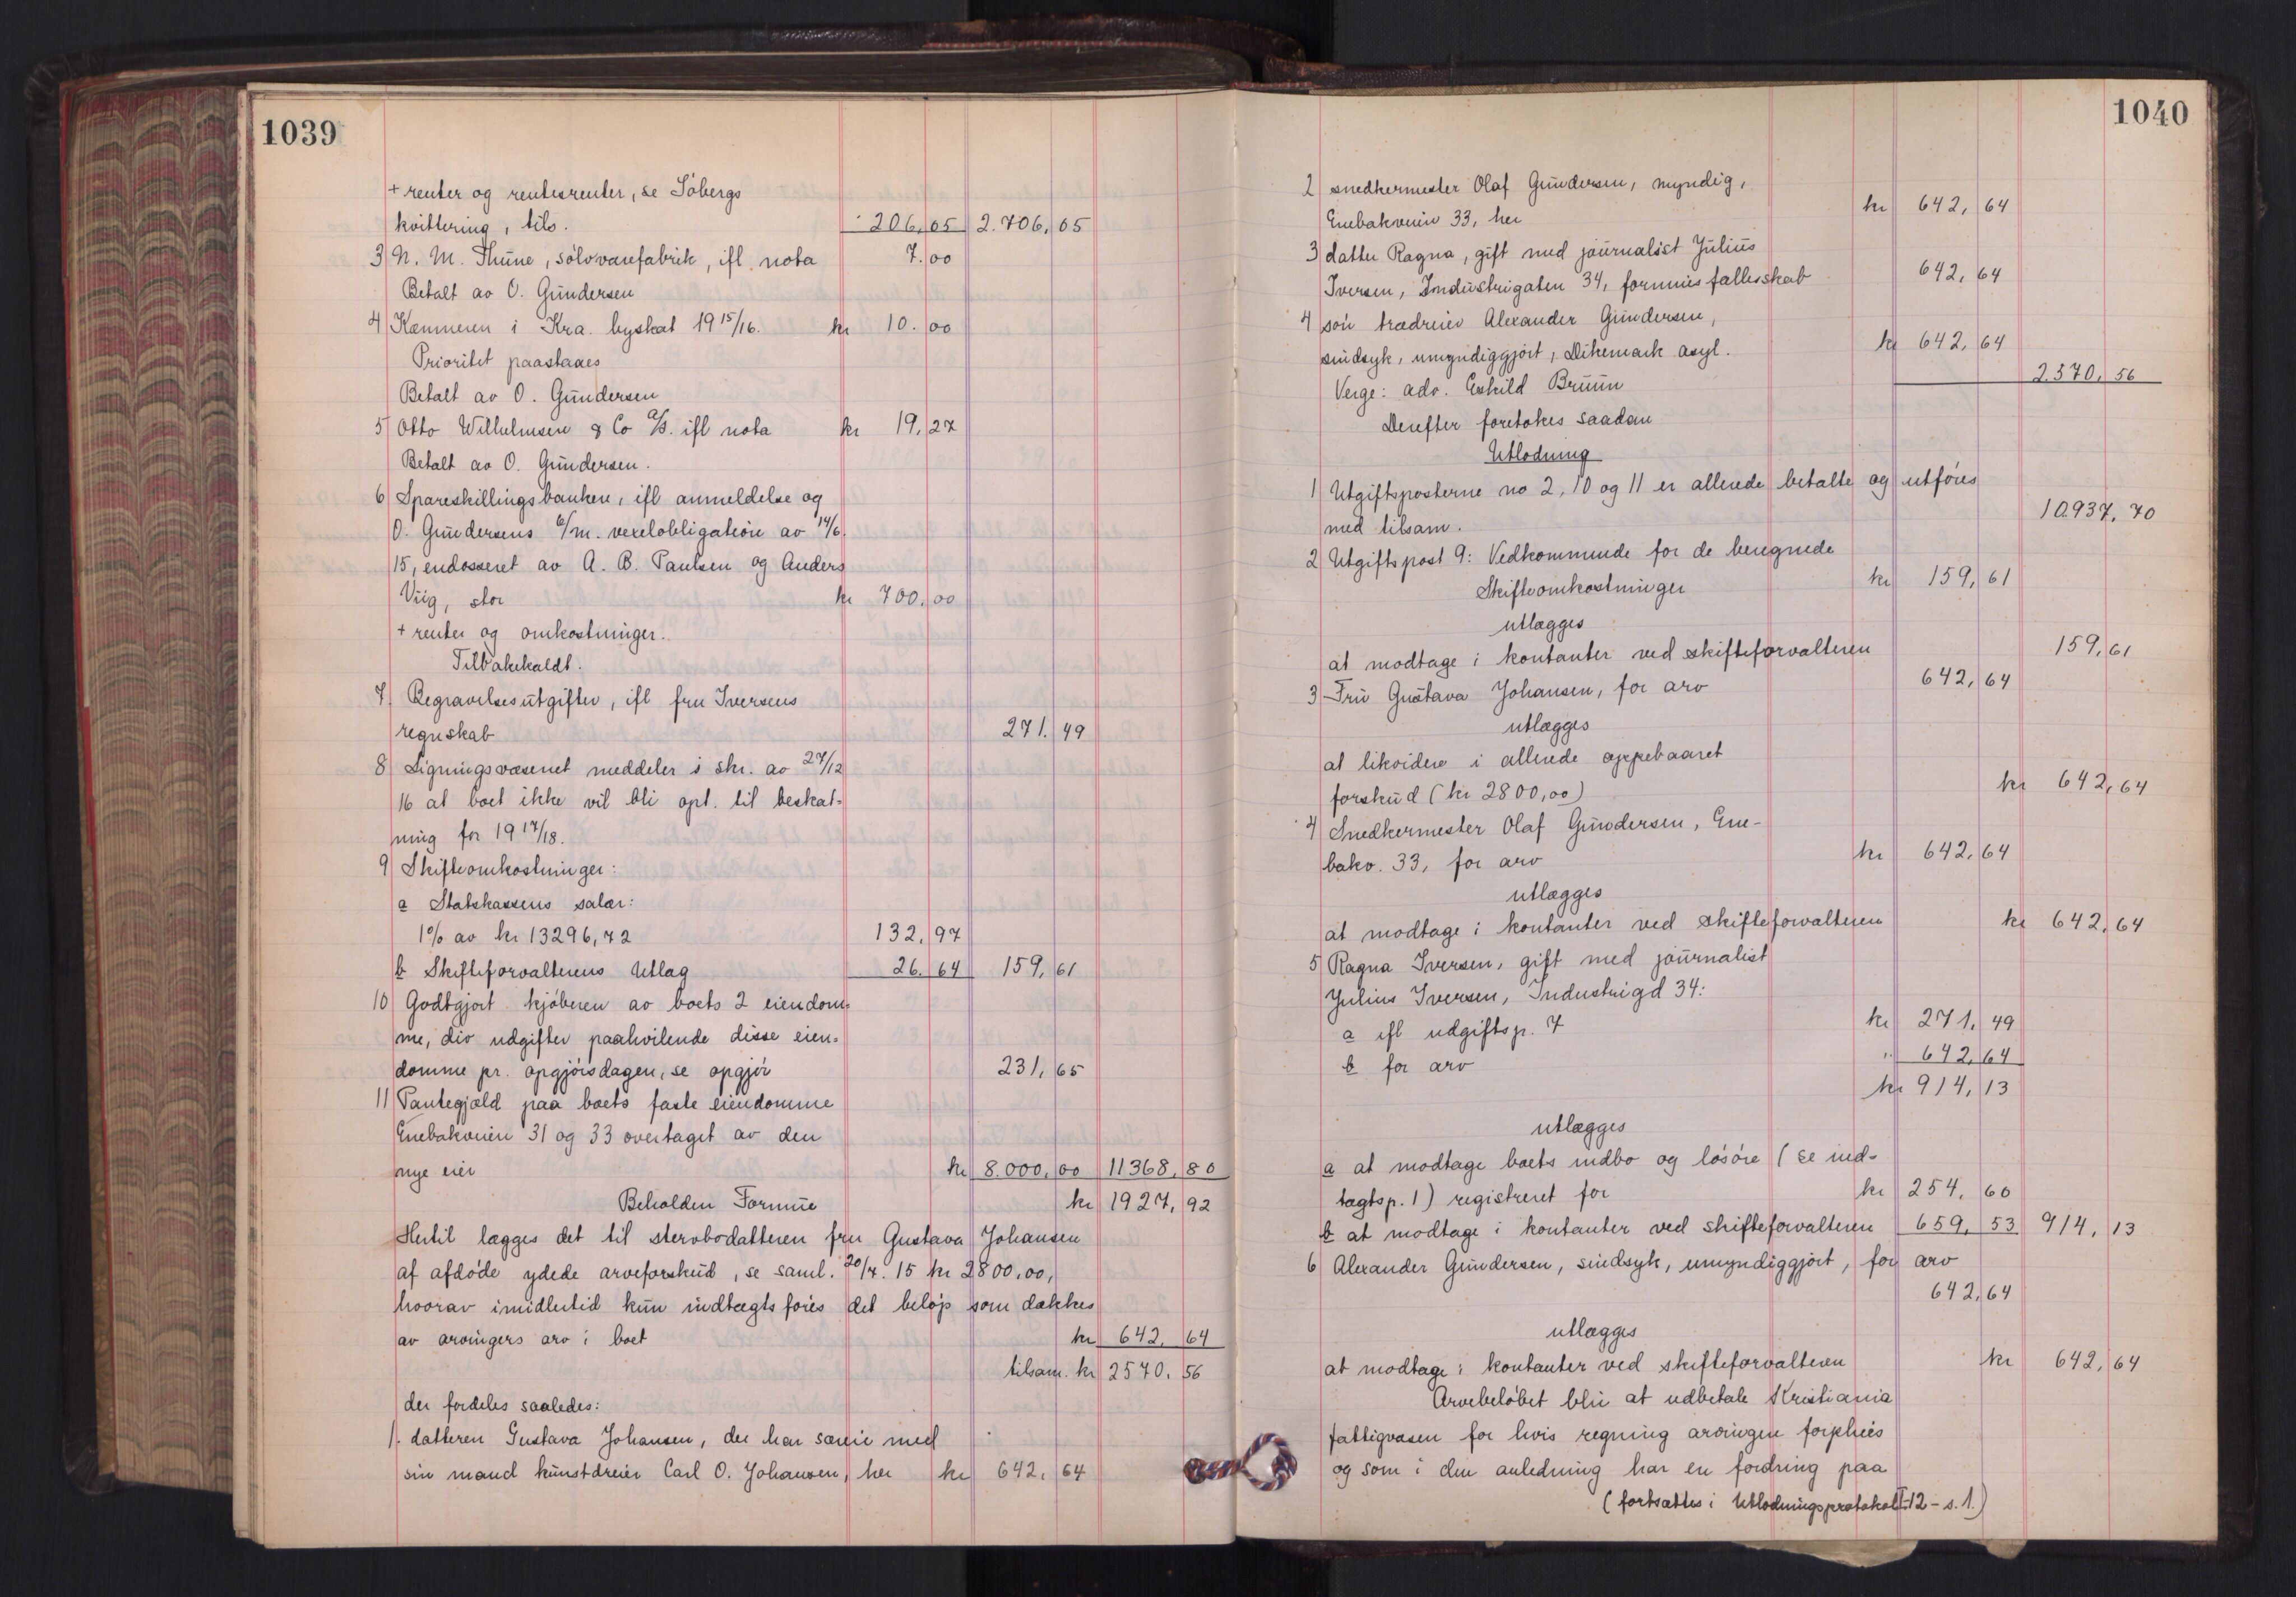 1039
+ renter og rentesrenter, se Söbergs
kvittering, tils. 206,05 2.706,05
3 N. M. Thune, sölvvarefabrik, ifl. nota 7.00
Betalt av O. Gundersen
4 Kæmneren i Kra. byskat 19 15/16. kr 10.00
Prioritet paastaaes
Betalt av O. Gundersen
5 Otto Wilhelmsen & Co A/S. ifl nota kr 19,27
Betalt av O. Gundersen.
6 Spareskillingsbanken, ifl anmeldelse og
O. Gundersens 6/m. vexelobligation av 14/6.
15, endosseret av A. B. Paulsen og Anders
Viig, stor kr 700.00
+ renter og omkostninger.
Tilbakekaldt.
7 Begravelsesutgifter, ifl fru Iversens
regnskab 271.49
8 Ligningsvæsenet meddeler i skr. av 27/12
16 at boet ikke vil bli opt. til beskat-
ning for 19 17/18.
9 Skifteomkostninger:
a Statskassens salær:
1% av kr 13296,72 132,97
b Skifteforvalterens Utlag 26.64 159,61
10 Godtgjort kjöberen av boets 2 eiendom-
me, div udgifter paahvilende disse eien-
domme pr. opgjörsdagen, se opgjör 231,65
11 Pantegjæld paa boets faste eiendomme
Enebakveien 31 og 33 overtaget av den
nye eier kr 8.000,00 11368,80
Beholden Formue kr 1927,92
Hertil lægges det til stervbodatteren fru Gustava Johansen
af afdöde ydede arveforskud, se saml. 20/7. 15 kr 2800,00,
hvorav imidlertid kun indtægtsföres det belöp som dækkes
av arvingers arv i boet kr 642,64
tilsam. kr 2570,56
der fordeles saaledes:
1. datteren Gustava Johansen, der har særeie med
sin mand kunstdreier Carl O. Johansen, her kr 642,64
1040
2 snedkermester Olaf Gundersen, myndig,
Enebakveien 33, her kr 642,64
3 datter Ragna, gift med journalist Julius
Iversen, Industrigaten 34, formuesfællesskab 642,64
4 sön trædreier Alexander Gundersen,
sindsyk, umyndiggjort, Dikemark asyl. kr 642,64
2.570,56
Verge: adv. Eskild Bruun
Derefter foretokes saadan
Utlodning
1 Utgiftsposterne no 2, 10 og 11 er allerede betalte og utföres
med tilsam. 10.937,70
2 Utgiftspost 9: Vedkommende for de beregnede
Skifteomkostninger kr 159,61
utlægges
at modtage i kontanter ved skifteforvalteren 159,61
3 Fru Gustava Johansen, for arv 642,64
utlægges
at likvidere i allerede oppebaaret
forskud (kr 2800,00) kr 642,64
4 Snedkermester Olaf Gundersen, Ene-
bakv. 33, for arv kr 642,64
utlægges
at modtage i kontanter ved skifteforvalteren kr 642,64
5 Ragna Iversen, gift med journalist
Julius Iversen, Industrigd 34:
a ifl udgiftsp. 7 kr 271,49
b for arv " 642,64
kr 914,13
utlægges
a at modtage boets indbo og lösöre (se ind-
tægtsp. 1) registreret for kr 254,60
b at modtage i kontanter ved skifteforvalteren 659,53 914,13
6 Alexander Gundersen, sindsyk, umyndiggjort, for arv
642,64
utlægges
at modtage i kontanter ved skifteforvalteren kr 642,64
Arvebelöbet blir at udbetale Kristiania
fattigvæsen for hvis regning arvingen forpleies
og som i den anledning har en fordring paa
(fortsættes i Utlodningsprotokol I-12 - s. 1.)